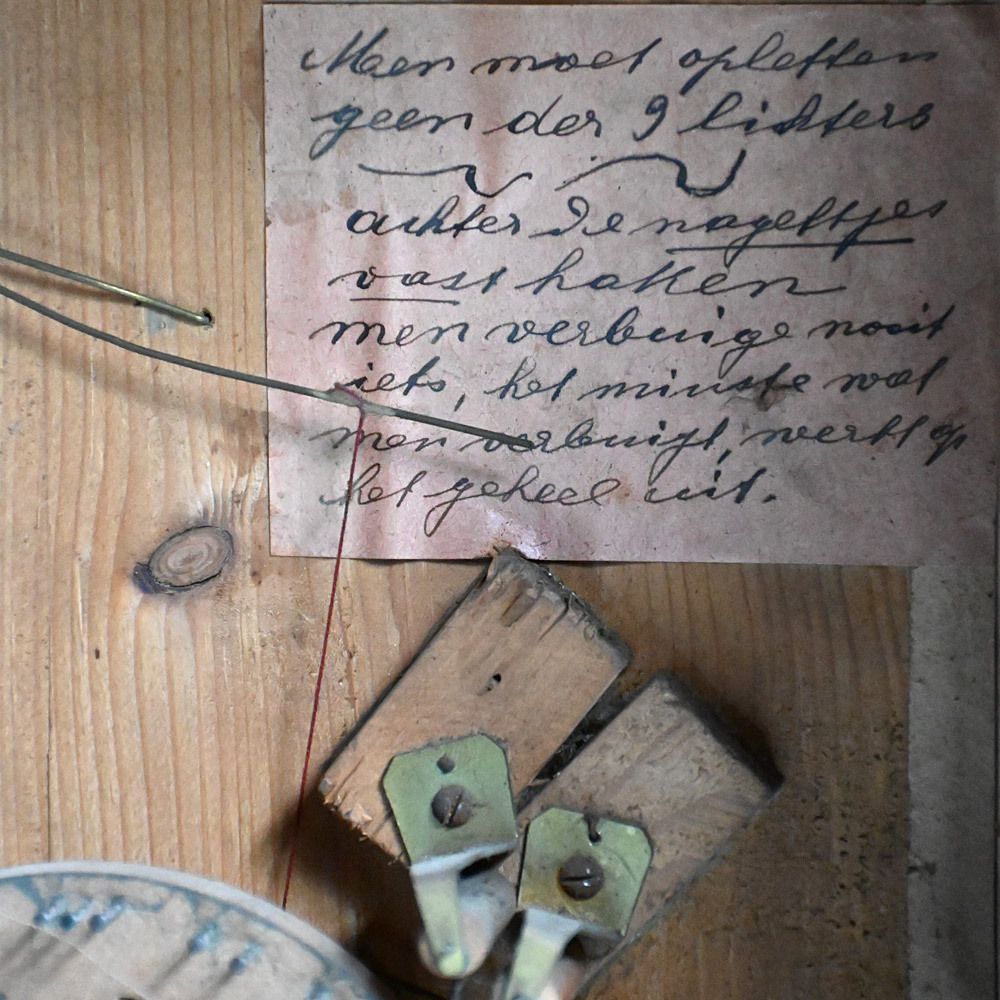 Men moet opletten
geen der 9 lichters
achter de nageltjes
vast haken
men verbuige nooit
iets, het minste wat
men verbuigt, werkt op
het geheel uit.